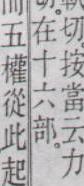 切按當云力
切在十六部。
而五權從此起